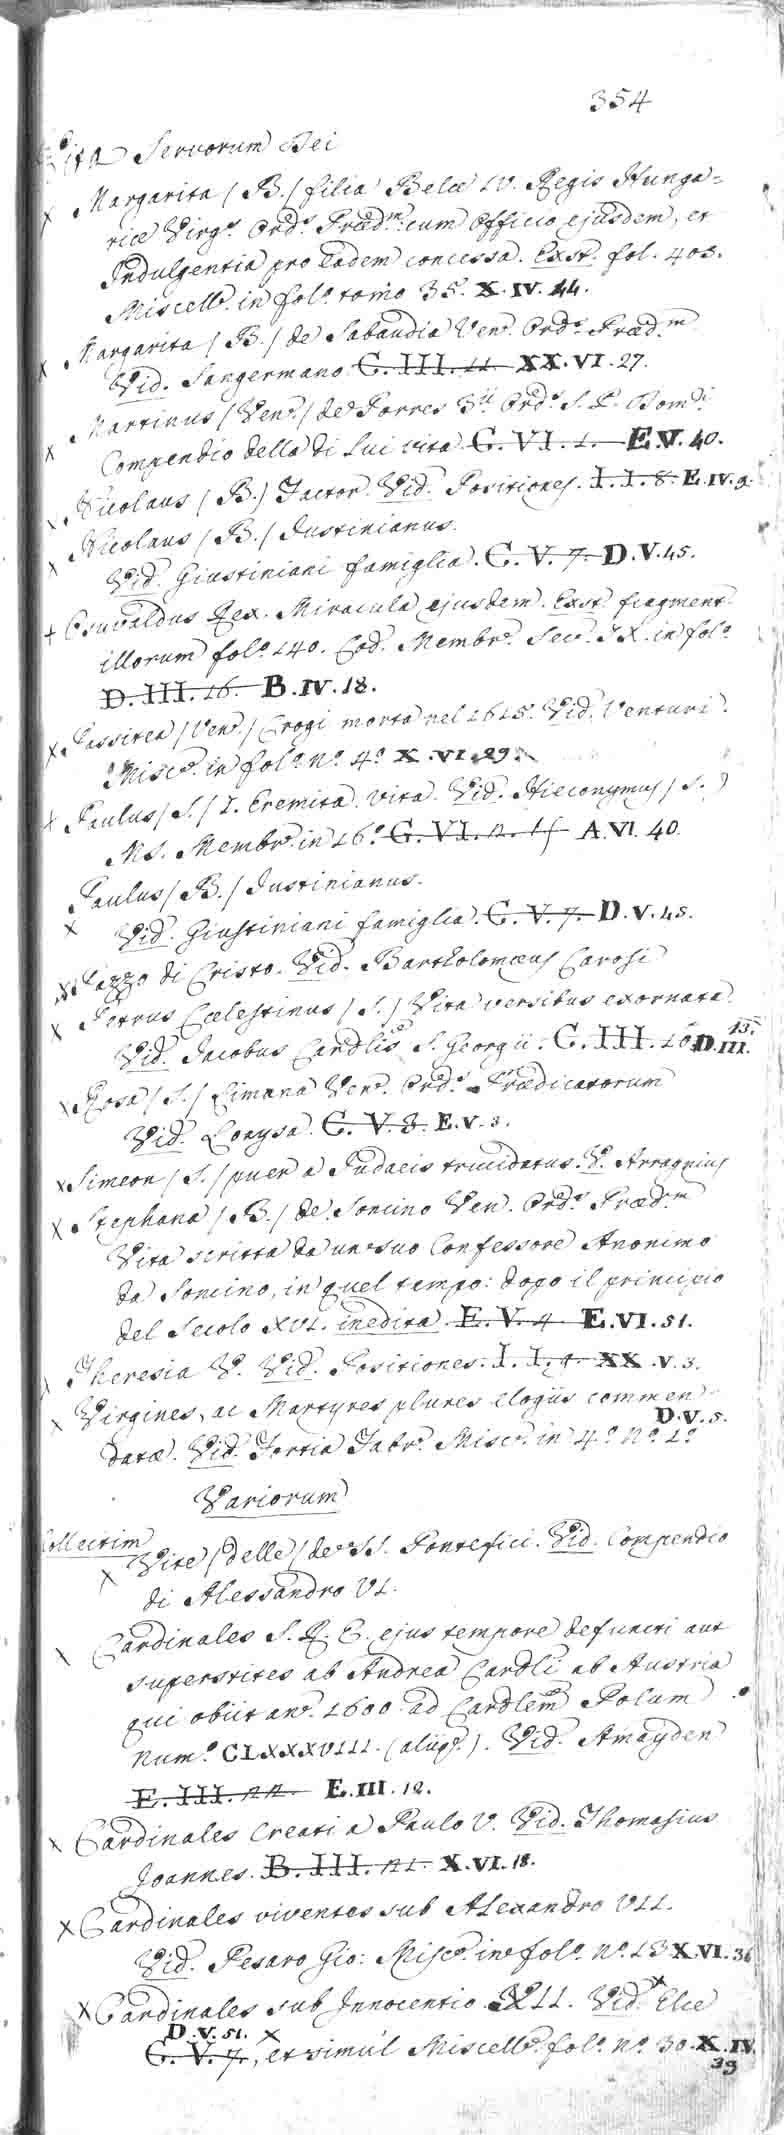 354
Vita Servorum Dei
x Margarita (B.) filia Belæ IV. Regis Hunga=
riæ Virgs. Ords. Prædm. cum Officio ejusdem, et
Indulgentia pro eadem concessa. Exst. fol. 403.
Miscell. in folo. tomo 35. X.IV.44.
x Margarita (B.) de Sabaudia Ven. Ords. Prædm.
Vid. Sangermano C.III.11 XX.VI.27.
x Martinus (Ven.) de Porres 3ii Ords. S. P. Domci.
Compendio della di lui vita G.VI.1. E.V.40.
Nicolaus (B.) Factor. Vid. Positiones. I.I.8. E.IV.9.
x Nicolaus (B.) Justinianus.
Vid. Giustiniani famiglia. C.V.7. D.V.45.
+ Osuvaldus Rex. Miracula ejusdem. Exst. fragment.
illorum folo. 140. Cod. Membro. Sec. IX. in folo.
D.III.16. B.IV.18.
x Passitea (Ven.) Crogi morta nel 1615. Vid. Venturi.
Misco. in folo. no. 4o. X.VI.29.
x Paulus (S.) I. Eremita. vita. Vid. Hieronymus (S.)
Ms. Membro. in 16o. G.VI.12.15 A.VI.40.
Paulus (B.) Justinianus.
x Vid. Giustiniani famiglia. C.V.7. D.V.45.
x Pazzo di Cristo. Vid. Bartholomæus Carosi
x Petrus Cœlestinus (S.) Vita versibus exornata.
Vid. Jacobus Cardlis S. Georgii. C.III.16 D.III. 13.
x Rosa (S.) Limana Ven. Ords. Prædicatorum
Vid. Loaysa. C.V.3. E.V.3.
x Simeon (S.) puer a Judaeis trucidatus. V. Arragnius
x Stephana (B.) de Soncino Ven. Ords. Prædm.
Vita scritta da un suo Confessore Anonimo
da Soncino, in quel tempo: dopo il principio
del Secolo XVI. inedita. E.V.4 E.VI.51.
x Theresia V. Vid. Positiones. I.I.9. XX.V.3.
x Virgines, ac Martyres plures elogiis commen-
D.V.5.
datæ. Vid. Tortia Fabr. Misco. in 4o. No. 1o.
Variorum
Collectim
x Vite (delle) de SS. Pontefici. Vid. Compendio
di Alessandro VI.
x Cardinales S. R. E. ejus tempore defuncti aut
superstites ab Andrea Cardli ab Austria
qui obiit ano. 1600. ad Cardlem Polum
Numo. CLXXXVIII. (aliiqs.). Vid. Amayden
E.III.22. E.III.12.
x Cardinales creati a Paulo V. Vid. Thomasius
Joannes. B.III.21. X.VI.18.
x Cardinales viventes sub Alexandro VII.
Vid. Pesaro Gio: Misco. in folo. no. 13 X.VI.36
x Cardinales sub Innocentio XII. Vid. x Elce
D.V.51. x
C.V.7., et simul Miscello. folo. no. 30. X.IV.
39